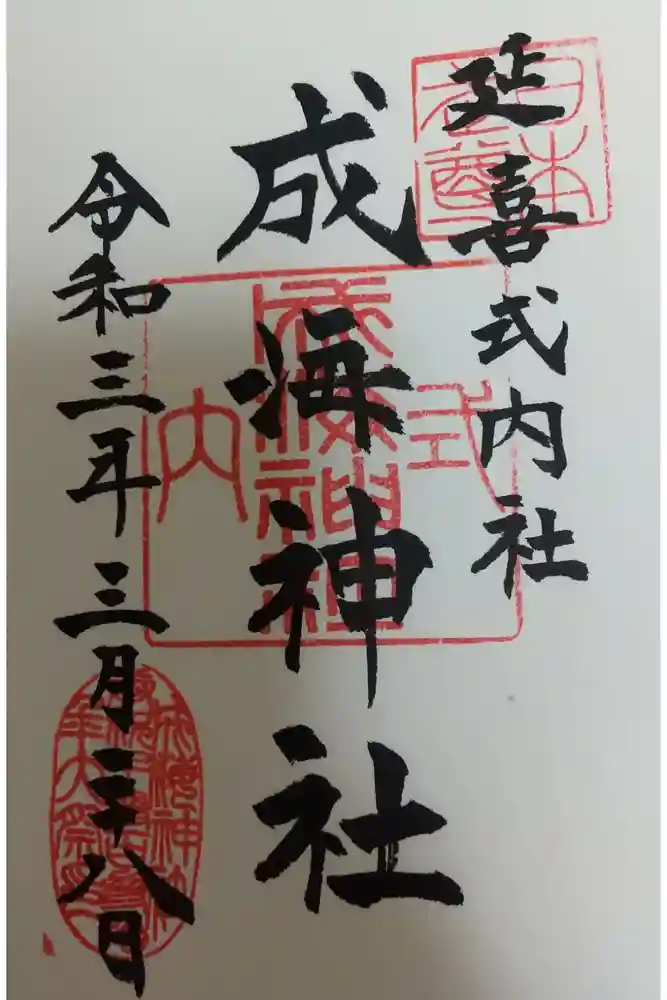 日本
武尊
延喜式内社
成海神社
式
成海神社
内
令和三年三月二十八日